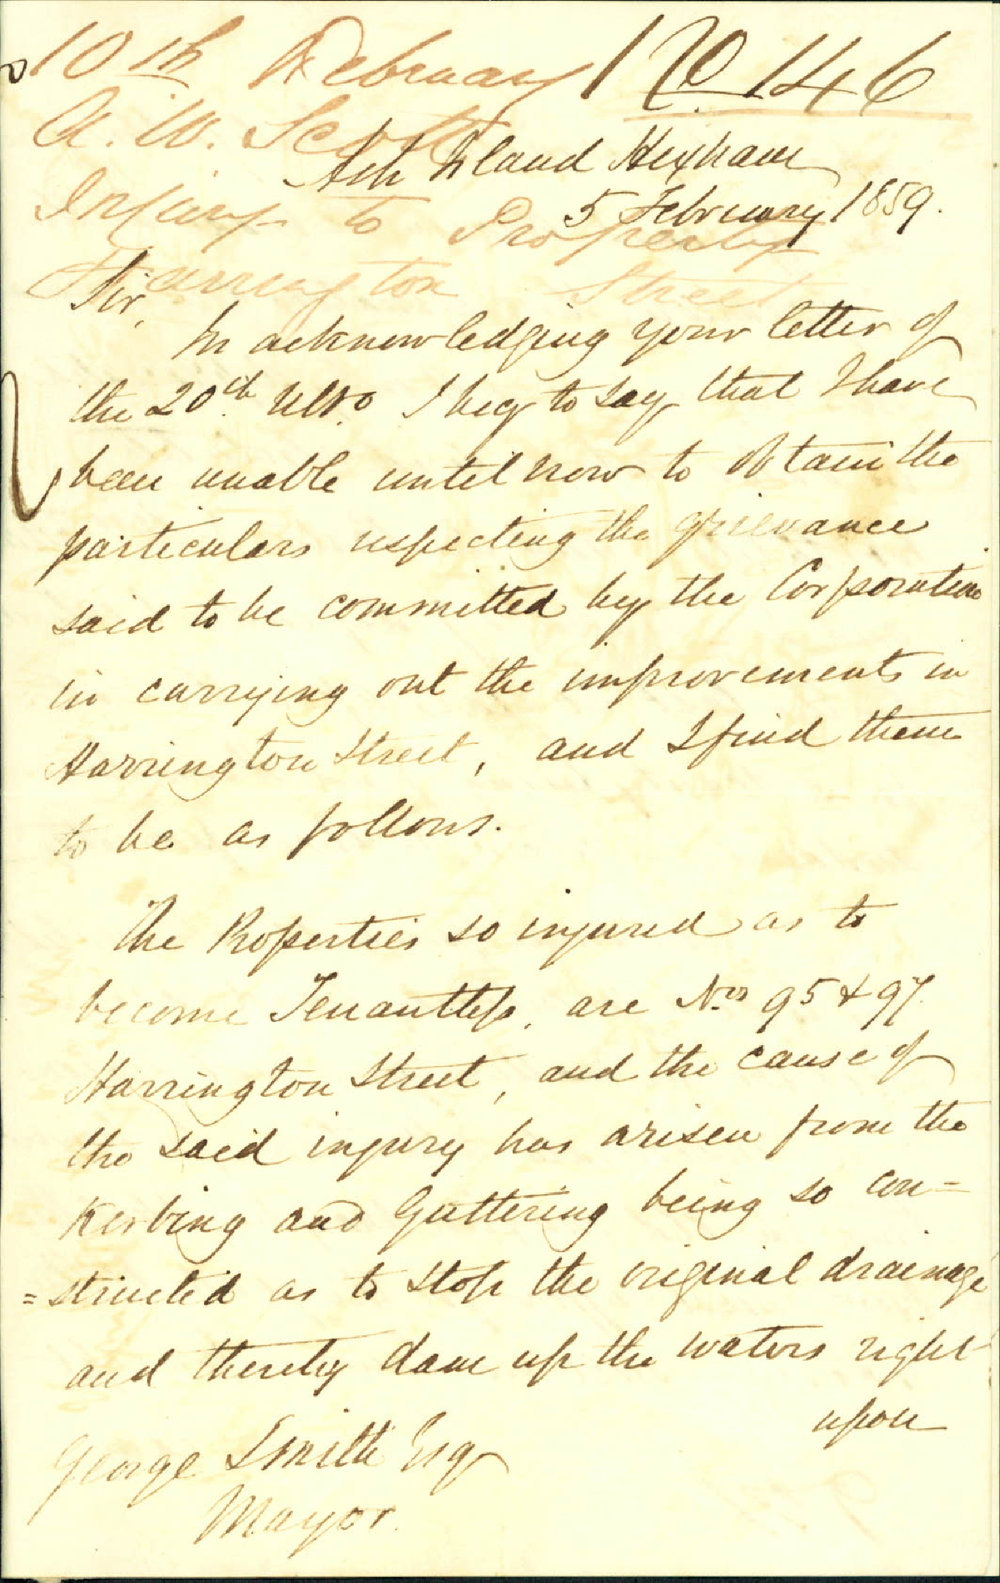 10th February No 146
A. W. Scott
Ash Island Hexham
5 February 1859.
Injury to Property
Harrington Street
Sir,
In acknowledging your letter of
the 20th Ulto. I beg to say that I have
been unable until now to obtain the
particulars respecting the grievance
said to be committed by the Corporation
in carrying out the improvements in
Harrington Street, and I find them
to be as follows.
The Properties so injured as to
become Tenantless, are Nos 95 & 97
Harrington Street, and the cause of
the said injury has arisen from the
Kerbing and Guttering being so con=
=structed as to stop the original drainage
and thereby dam up the waters right
upon
George Smith Esq
Mayor.